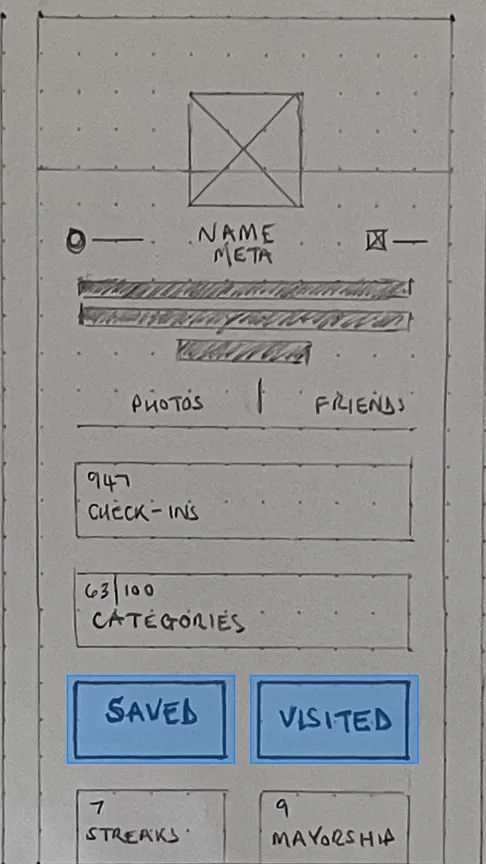 NAME
META
PHOTOS | FRIENDS
947
CHECK-INS
63/100
CATEGORIES
SAVED VISITED
7 9
STREAKS MAYORSHIP